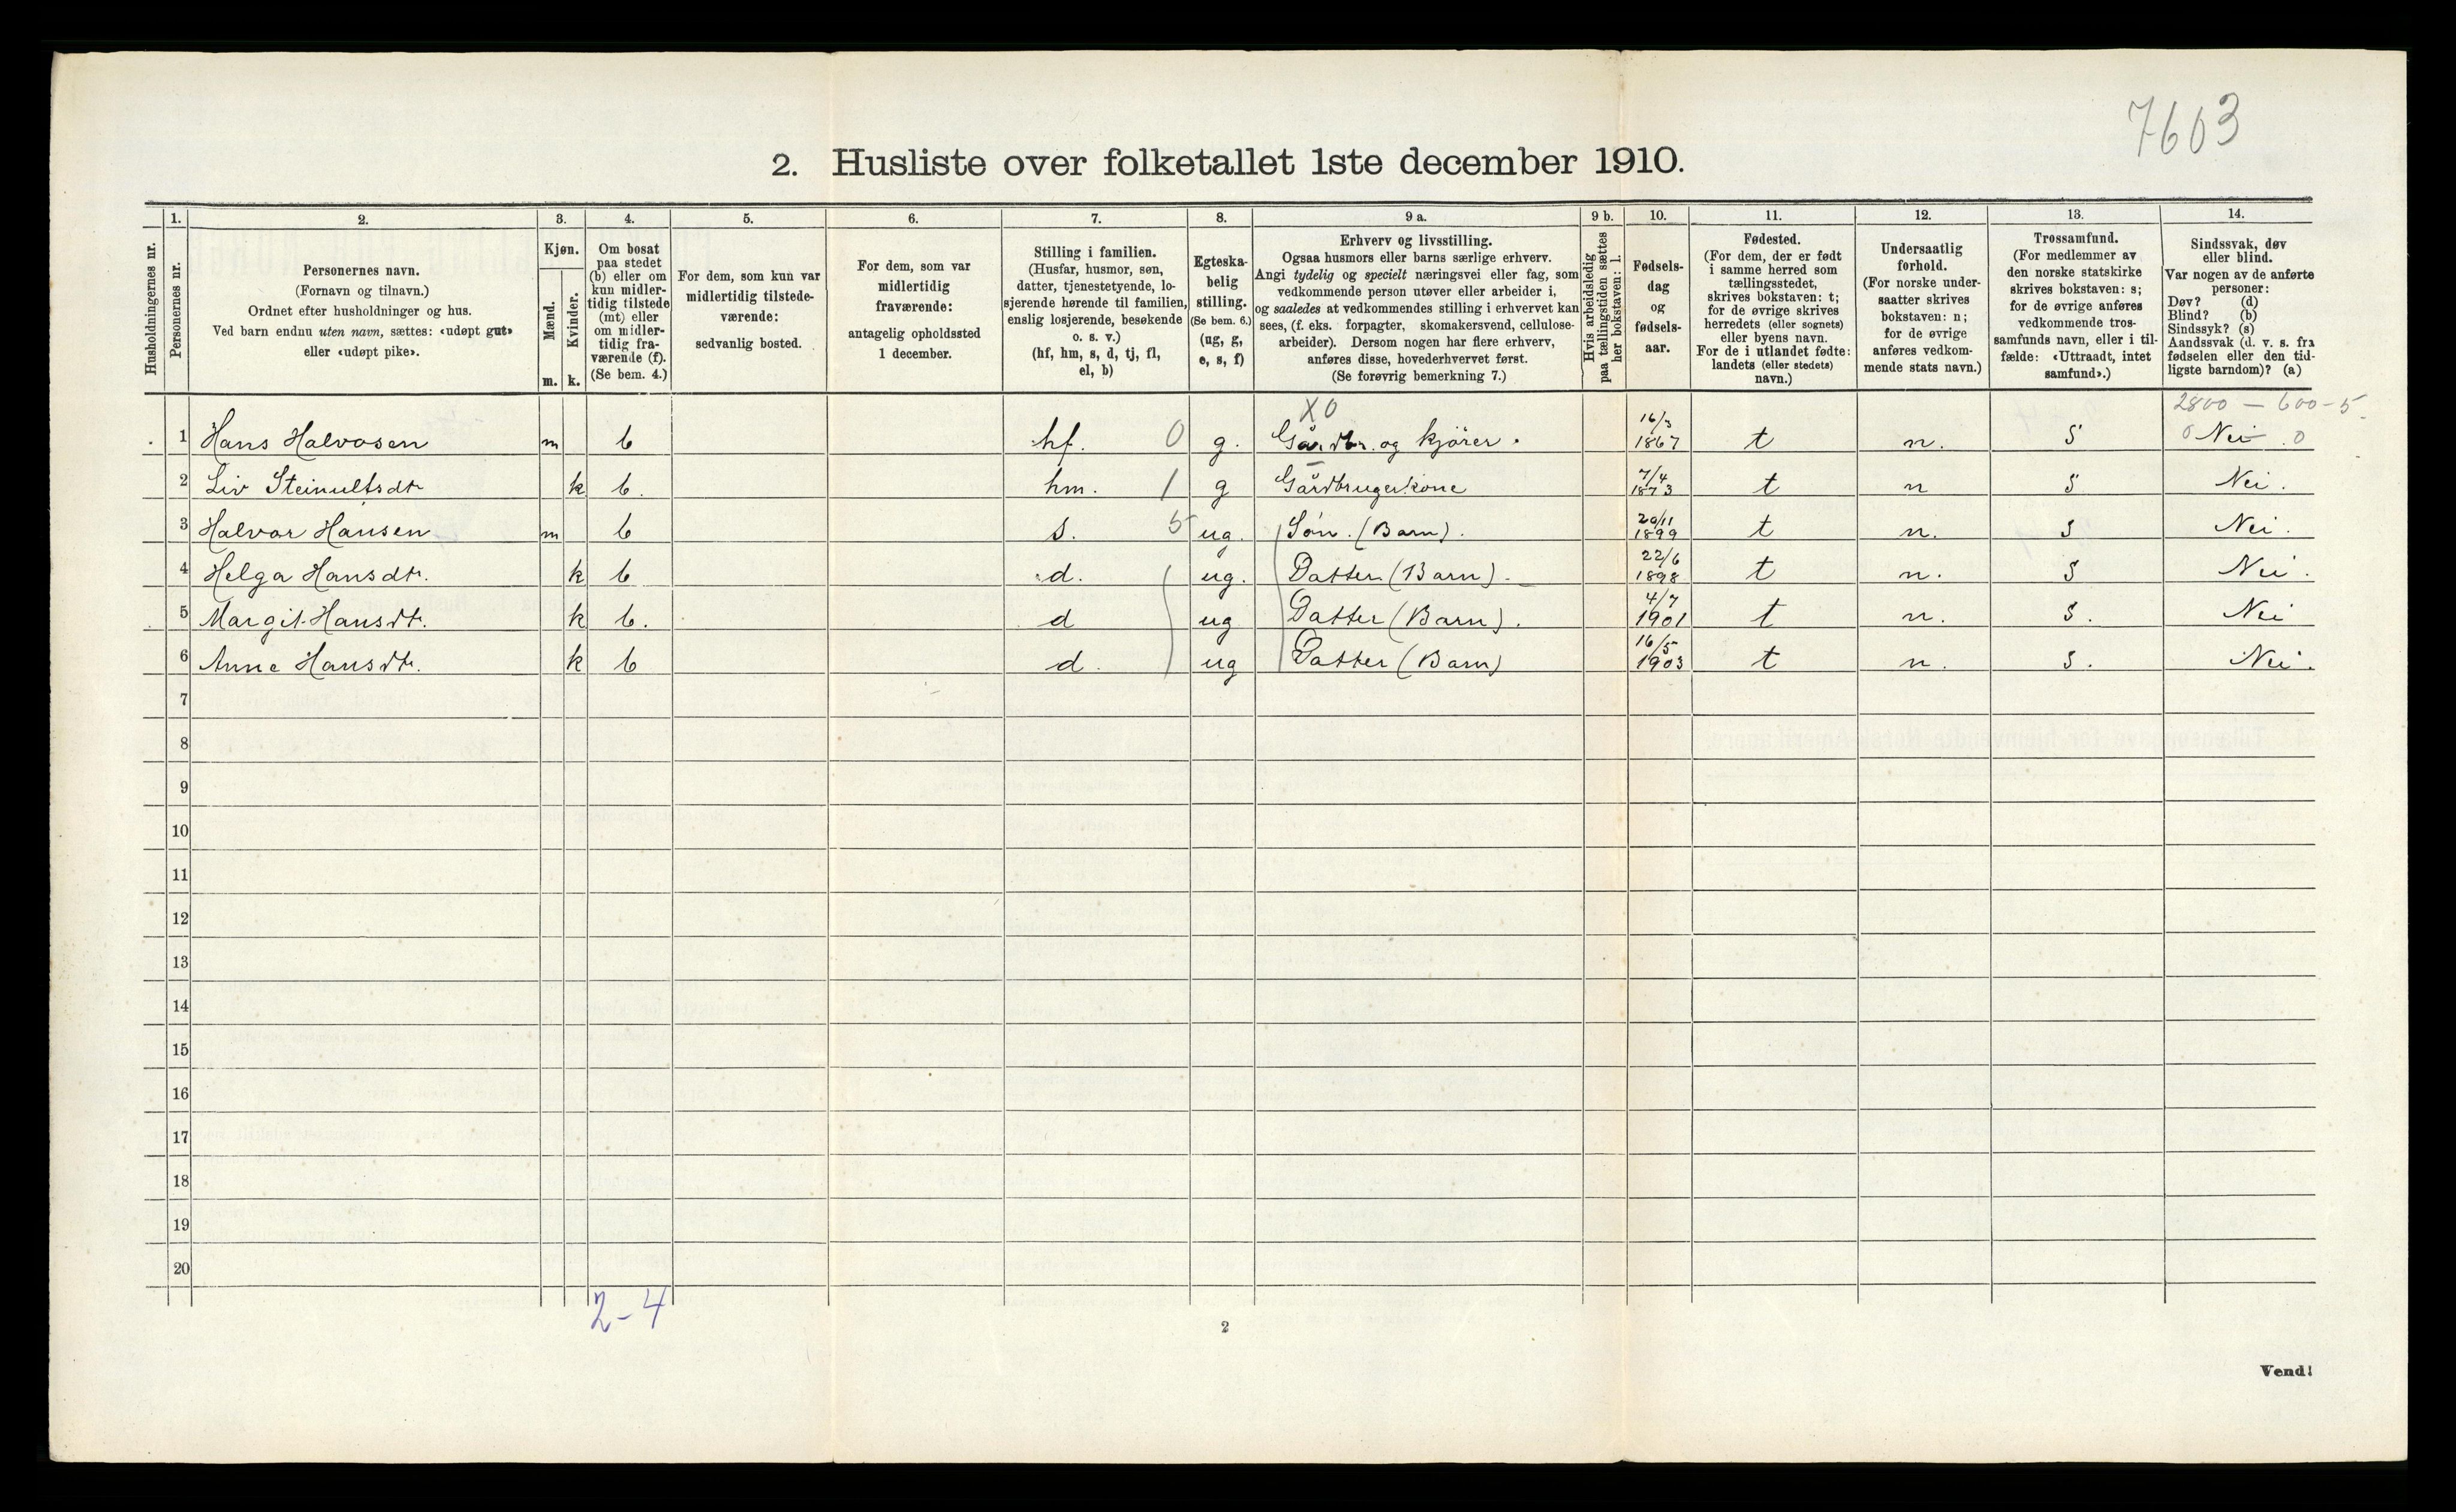 7603
2. Husliste over folketallet 1ste december 1910.
Husholdningernes nr.
1.
Personernes nr.
2.
Personernes navn.
(Fornavn og tilnavn.)
Ordnet efter husholdninger og hus.
Ved barn endnu uten navn, sættes: «udøpt gut»
eller «udøpt pike».
3.
Kjøn.
Mænd.
Kvinder.
m. k.
4.
Om bosat
paa stedet
(b) eller om
kun midler-
tidig tilstede
(mt) eller
om midler-
tidig fra-
værende (f).
(Se bem. 4.)
5.
For dem, som kun var
midlertidig tilstede-
værende:
sedvanlig bosted.
6.
For dem, som var
midlertidig
fraværende:
antagelig opholdssted
1 december.
7.
Stilling i familien.
(Husfar, husmor, søn,
datter, tjenestetyende, lo-
sjerende hørende til familien,
enslig losjerende, besøkende
o. s. v.)
(hf, hm, s, d, tj, fl,
el, b)
8.
Egteska-
belig
stilling.
(Se bem. 6.)
(ug, g,
e, s, f)
9 a.
Erhverv og livsstilling.
Ogsaa husmors eller barns særlige erhverv.
Angi tydelig og specielt næringsvei eller fag, som
vedkommende person utøver eller arbeider i,
og saaledes at vedkommendes stilling i erhvervet kan
sees, (f. eks. forpagter, skomakersvend, cellulose-
arbeider). Dersom nogen har flere erhverv,
anføres disse, hovederhvervet først.
(Se forøvrig bemerkning 7.)
9 b.
Hvis arbeidsledig
paa tællingstiden sættes
her bokstaven: l.
10.
Fødsels-
dag
og
fødsels-
aar.
11.
Fødested.
(For dem, der er født
i samme herred som
tællingsstedet,
skrives bokstaven: t;
for de øvrige skrives
herredets (eller sognets)
eller byens navn.
For de i utlandet fødte:
landets (eller stedets)
navn.)
12.
Undersaatlig
forhold.
(For norske under-
saatter skrives
bokstaven: n;
for de øvrige
anføres vedkom-
mende stats navn.)
13.
Trossamfund.
(For medlemmer av
den norske statskirke
skrives bokstaven: s;
for de øvrige anføres
vedkommende tros-
samfunds navn, eller i til-
fælde: «Uttraadt, intet
samfund».)
14.
Sindssvak, døv
eller blind.
Var nogen av de anførte
personer:
Døv? (d)
Blind? (b)
Sindssyk? (s)
Aandssvak (d. v. s. fra
fødselen eller den tid-
ligste barndom)? (a)
X0 2800 — 600-5
1 Hans Halvosen m b hf. 0 g. Gårdbr. og kjörer. 16/3 1867 t n. S 0 Nei 0
2 Liv Steinulfsdtr k b. hm. 1 g Gårdbrugerkone 7/4 1873 t n S Nei.
3 Halvor Hansen m b s. 5 ug. Søn. (Barn). 20/11 1899 t n. S Nei.
4 Helga Hansdtr. k b d. ug. Datter (Barn). 22/6 1898 t n. S Nei.
5 Margit Hansdtr. k b. d ug Datter (Barn). 4/7 1901 t n. S. Nei
6 Anne Hansdtr. k b d. ug Datter (Barn) 16/5 1903 t n. S. Nei.
7
8
9
10
11
12
13
14
15
16
17
18
19
20
2-4
2
Vend!